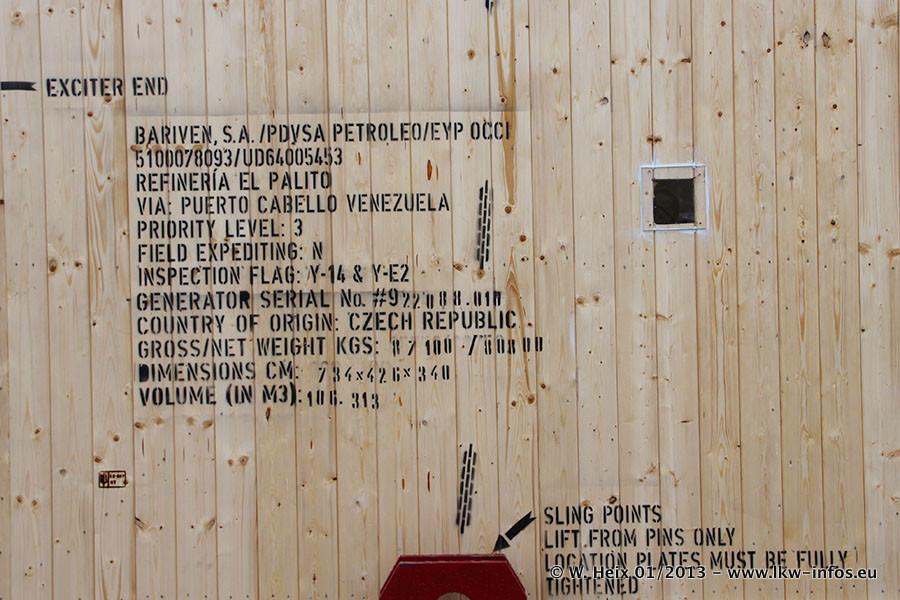 EXCITER END
BARIVEN, S.A. /PDVSA PETROLEO/EYP OCCI
5100078093/UD64005453
REFINERÍA EL PALITO
VIA: PUERTO CABELLO VENEZUELA
PRIORITY LEVEL: 3
FIELD EXPEDITING: N
INSPECTION FLAG: Y-14 & Y-E2
GENERATOR SERIAL No. #922088.010
COUNTRY OF ORIGIN: CZECH REPUBLIC
GROSS/NET WEIGHT KGS: 87100 /80800
DIMENSIONS CM: 734x426x340
VOLUME (IN M3): 106.313
SLING POINTS
LIFT FROM PINS ONLY
LOCATION PLATES MUST BE FULLY
TIGHTENED
© W. Heix 01/2013 - www.lkw-infos.eu